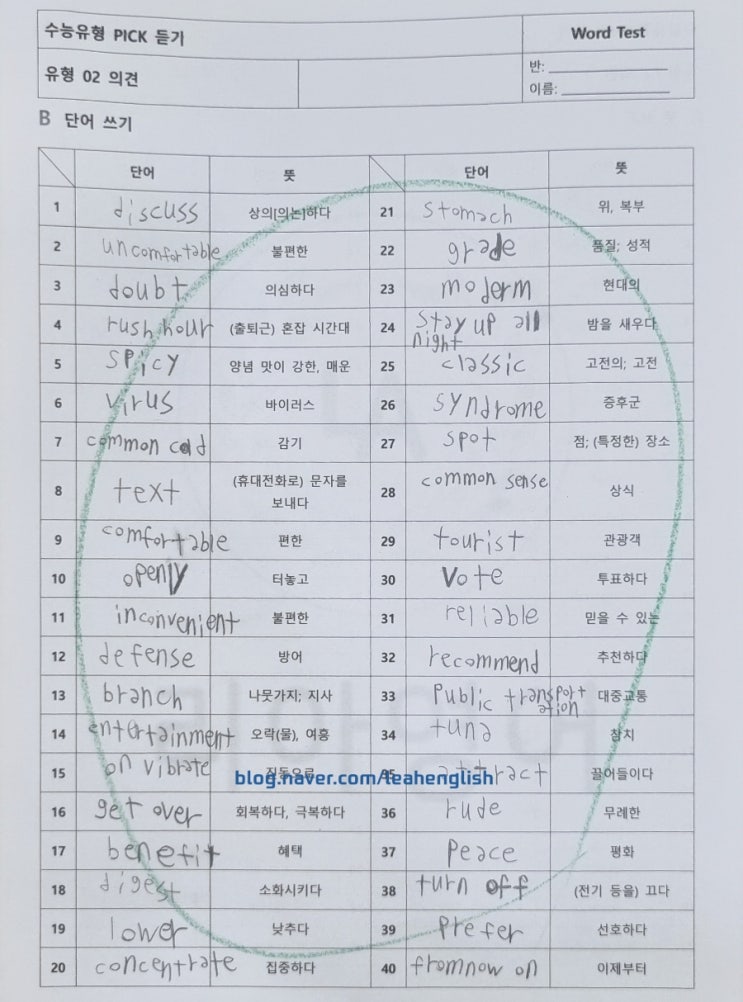 수능유형 PICK 듣기
Word Test
유형 02 의견
반:
이름:
B 단어 쓰기
단어 뜻 단어 뜻
1 discuss 상의[의논]하다 21 stomach 위, 복부
2 uncomfortable 불편한 22 grade 품질; 성적
3 doubt 의심하다 23 moderm 현대의
4 rush hour (출퇴근) 혼잡 시간대 24 stay up all night 밤을 새우다
5 spicy 양념 맛이 강한, 매운 25 classic 고전의; 고전
6 virus 바이러스 26 syndrome 증후군
7 common cold 감기 27 spot 점; (특정한) 장소
8 text (휴대전화로) 문자를 보내다 28 common sense 상식
9 comfortable 편한 29 tourist 관광객
10 openly 터놓고 30 vote 투표하다
11 inconvenient 불편한 31 reliable 믿을 수 있는
12 defense 방어 32 recommend 추천하다
13 branch 나뭇가지; 지사 33 public transportation 대중교통
14 entertainment 오락(물), 여흥 34 tuna 참치
15 on vibrate 진동으로 35 attract 끌어들이다
blog.naver.com/leahenglish
16 get over 회복하다, 극복하다 36 rude 무례한
17 benefit 혜택 37 peace 평화
18 digest 소화시키다 38 turn off (전기 등을) 끄다
19 lower 낮추다 39 prefer 선호하다
20 concentrate 집중하다 40 from now on 이제부터